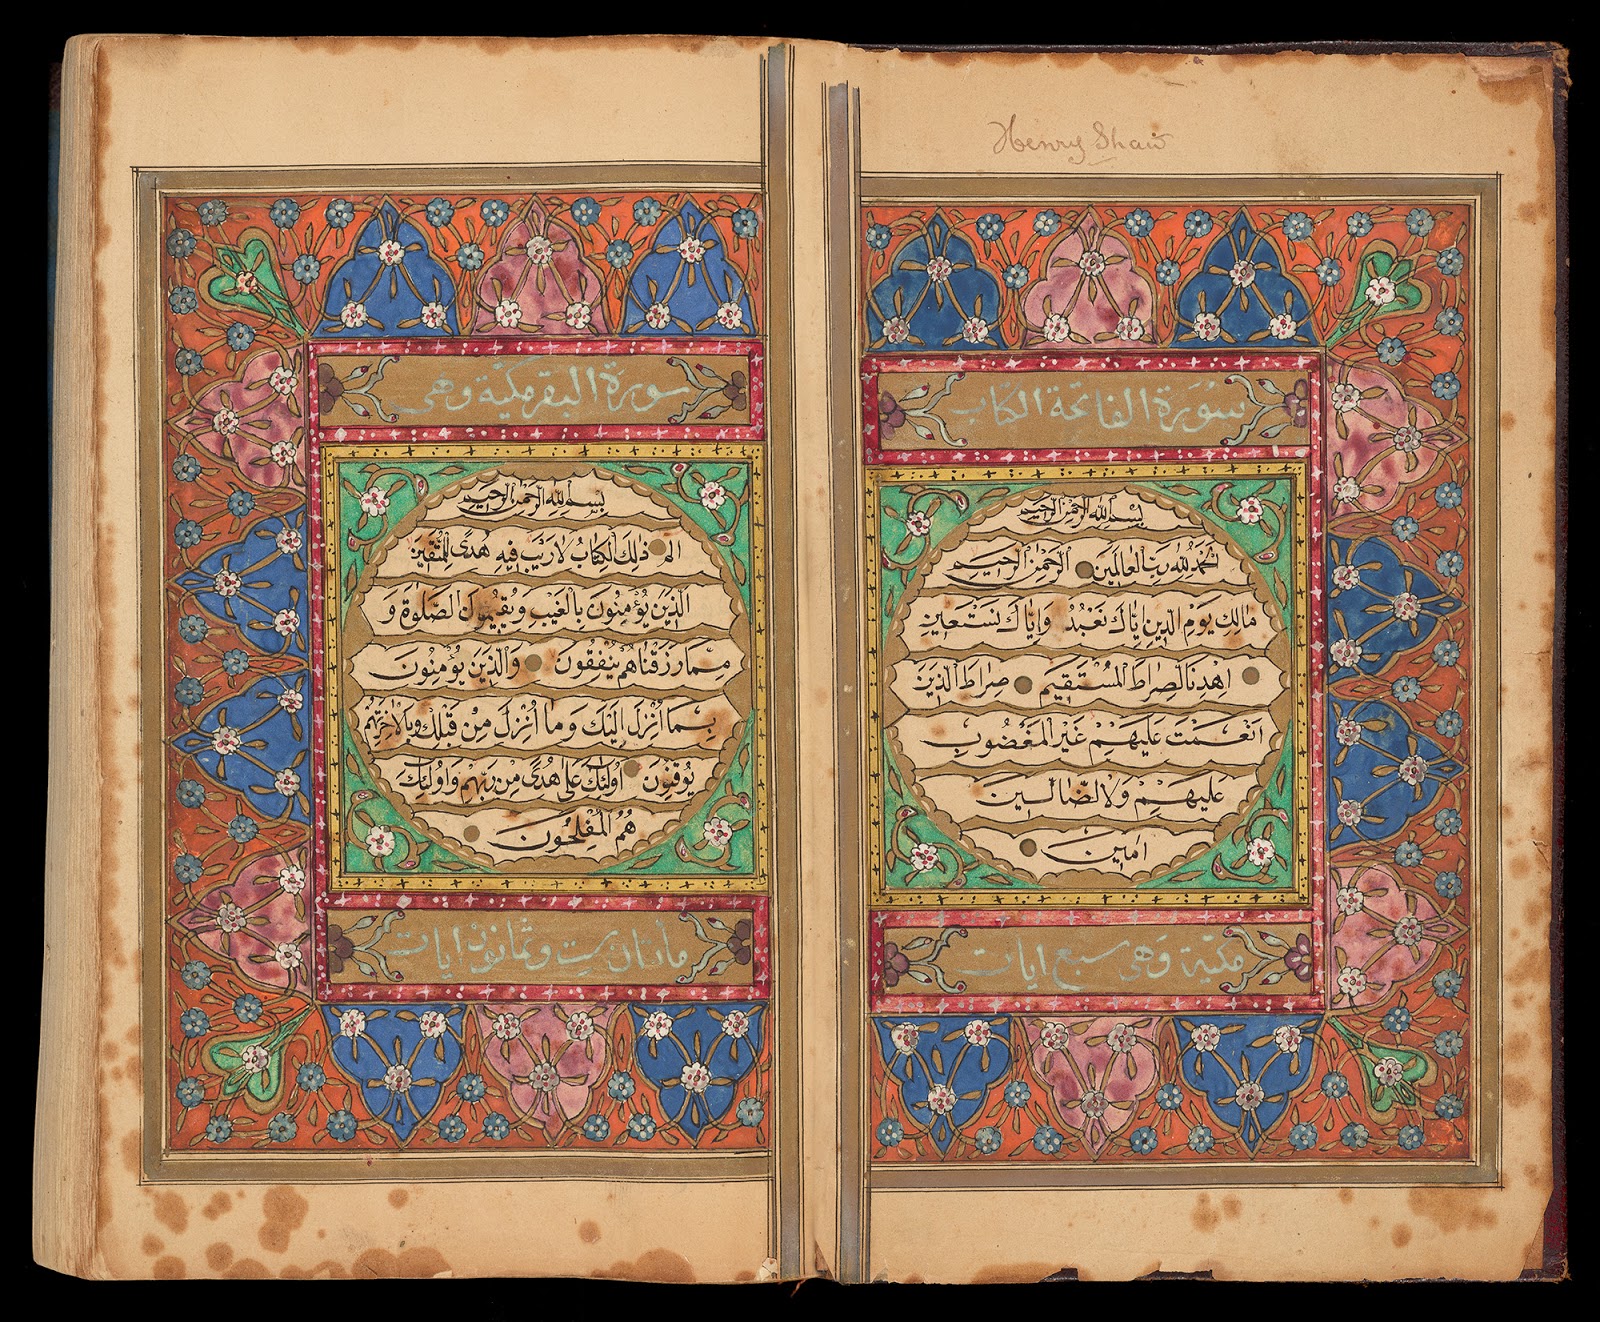 Henry Shaw
سُورَة الفاتحة الكتاب
بِسْمِ اللهِ الرَّحْمٰنِ الرَّحِيمِ
اَلْحَمْدُ لِلّٰهِ رَبِّ الْعَالَمِينَ الرَّحْمٰنِ الرَّحِيمِ
مَالِكِ يَوْمِ الدِّينِ اِيَّاكَ نَعْبُدُ وَاِيَّاكَ نَسْتَعِينُ
اِهْدِنَا الصِّرَاطَ الْمُسْتَقِيمَ صِرَاطَ الَّذِينَ
اَنْعَمْتَ عَلَيْهِمْ غَيْرِ الْمَغْضُوبِ
عَلَيْهِمْ وَلَا الضَّالِّينَ
اٰمِينَ
مكيّة وَهى سبع ايات
سورة البقر مكيّة وهى
بِسْمِ اللهِ الرَّحْمٰنِ الرَّحِيمِ
الم ذٰلِكَ الْكِتَابُ لَا رَيْبَ فِيهِ هُدًى لِلْمُتَّقِينَ
الَّذِينَ يُؤْمِنُونَ بِالْغَيْبِ وَيُقِيمُونَ الصَّلٰوةَ وَ
مِمَّا رَزَقْنَاهُمْ يُنْفِقُونَ وَالَّذِينَ يُؤْمِنُونَ
بِمَا اُنْزِلَ اِلَيْكَ وَمَا اُنْزِلَ مِنْ قَبْلِكَ وَبِالْاٰخِرَةِ هُمْ
يُوقِنُونَ اُولٰئِكَ عَلٰى هُدًى مِنْ رَبِّهِمْ وَاُولٰئِكَ
هُمُ الْمُفْلِحُونَ
مأتان ست وثمانون ايات